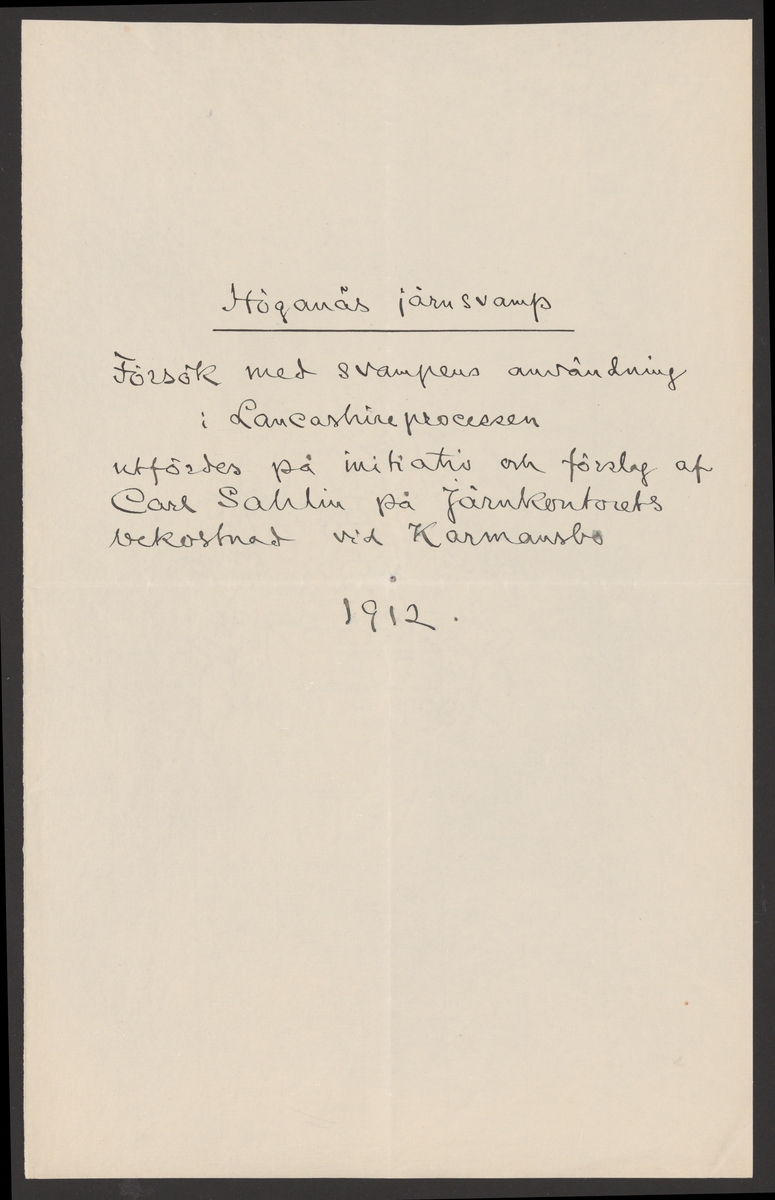 Höganäs järnsvamp
Försök med svampens användning
i Lancashireprocessen
utfördes på initiativ och förslag af
Carl Sahlin på Järnkontorets
bekostnad vid Karmansbo
1912.